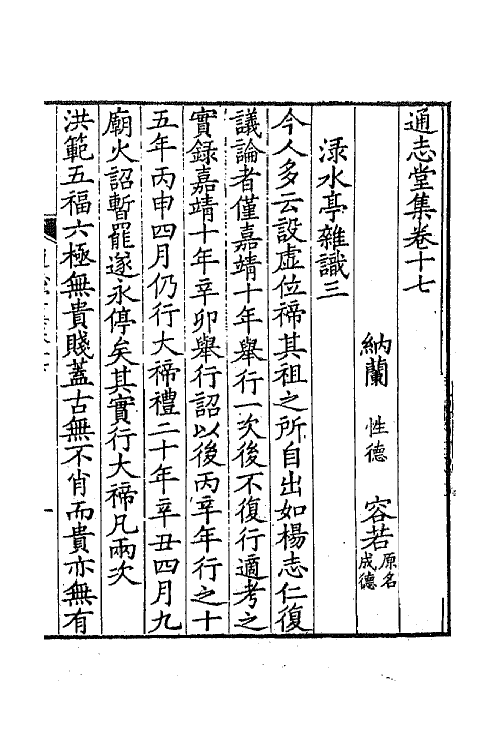 通志堂集卷十七
納蘭 性德 容若原名成德
淥水亭雜識三
今人多云設虛位禘其祖之所自出如楊志仁復
議論者僅嘉靖十年舉行一次後不復行適考之
實錄嘉靖十年辛卯舉行詔以後丙辛年行之十
五年丙申四月仍行大禘禮二十年辛丑四月九
廟火詔暫罷遂永停矣其實行大禘凡兩次
洪範五福六極無貴賤蓋古無不肖而貴亦無有